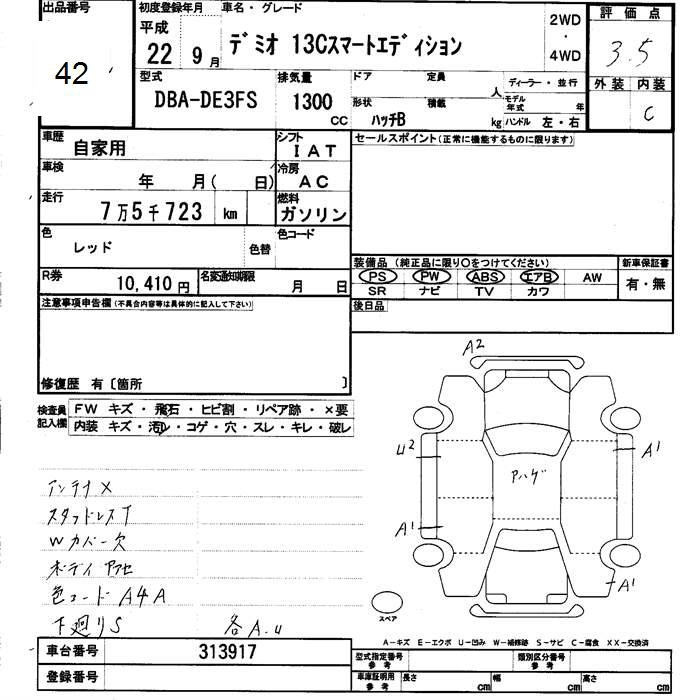 出品番号 初度登録年月 車名・グレード 2WD 評価点
平成 ・
42 22 9月 デミオ 13Cスマートエディション 4WD 3.5
型式 排気量 ドア 定員 人 ディーラー・並行 外装 内装
DBA-DE3FS 1300 CC 形状 積載 モデル年式 年
ハッチB kg ハンドル 左・右 C
車歴 自家用 シフト IAT セールスポイント(正常に機能するものに限ります)
車検 年 月( 日) 冷房 AC
走行 7万5千723 km 燃料 ガソリン
色 レッド 色替 色コード
装備品 (純正品に限り○をつけてください) 新車保証書
PS PW ABS エアB AW 有・無
SR ナビ TV カワ
R券 10,410円 名変通知期限 月 日
後日品
注意事項申告欄 (不具合内容等は具体的に記入して下さい)
修復歴 有〔箇所 〕
検査員記入欄 FW キズ・飛石・ヒビ割・リペア跡・×要
内装 キズ・汚レ・コゲ・穴・スレ・キレ・破レ
A2
U2 A1
アハゲ
A1
A1
アンテナ×
スタッドレスT
Wカバー欠
ボディ アクセ
色コード A4A
下廻りS 各A.U
スペア
A-キズ E-エクボ U-凹み W-補修跡 S-サビ C-腐食 XX-交換済
車台番号 313917 型式指定番号 参考 類別区分番号 参考
登録番号 車庫証明用 参考 長さ cm 幅 cm 高さ cm